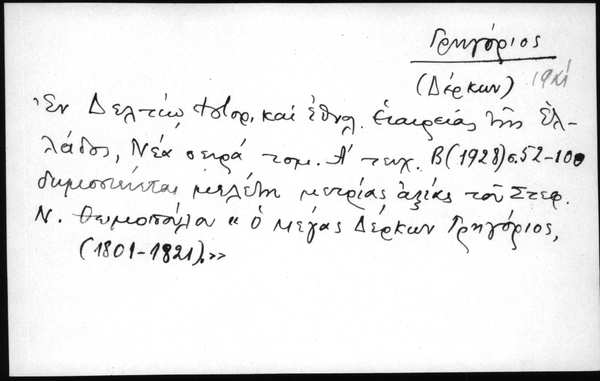 Γρηγόριος
(Δέρκων)
Ἐν Δελτίῳ Ἱστορ. καὶ ἐθνολ. Ἑταιρείας τῆς Ἑλ-
λάδος, Νέα σειρά τομ. Α' τευχ. Β (1928) σ. 52-100
δημοσιεύεται μελέτη μετρίας ἀξίας τοῦ Στεφ.
Ν. Θωμοπούλου « ὁ μέγας Δέρκων Γρηγόριος,
(1801-1821).»